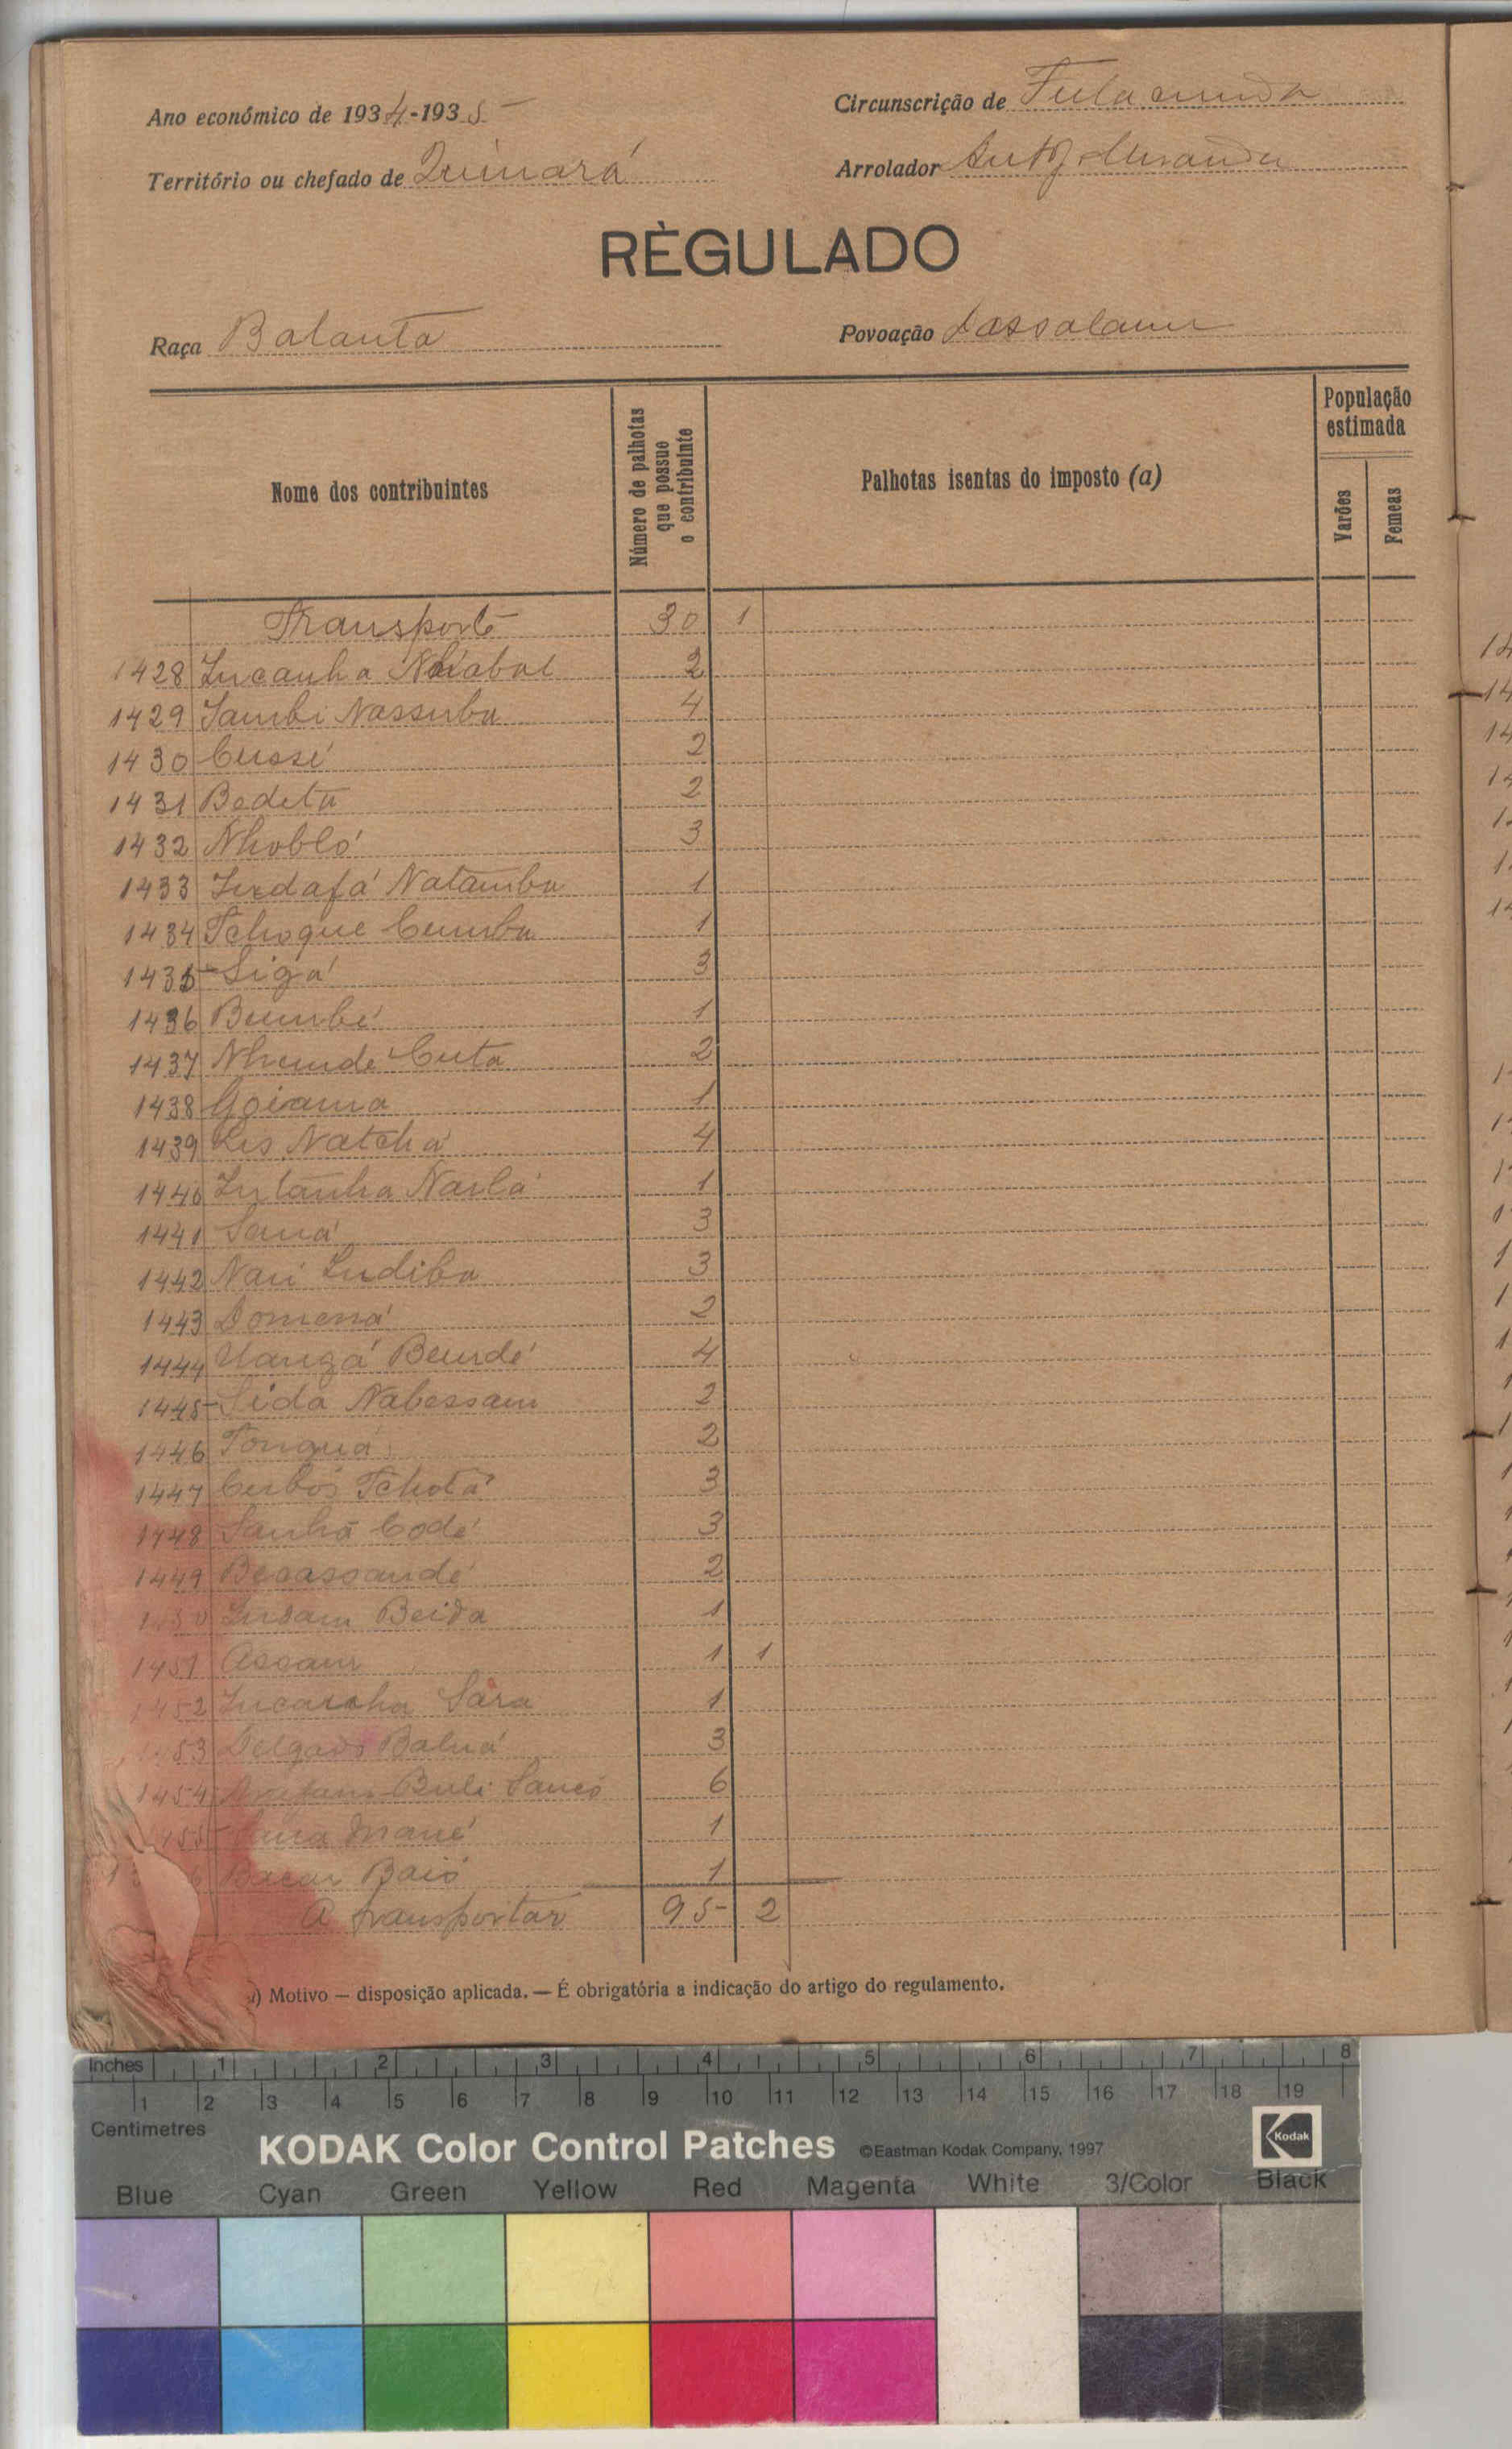 Ano económico de 1934-1935
Circunscrição de Fulacunda
Território ou chefado de Quinará
Arrolador
RÈGULADO
Raça Balanta
Povoação Dassalam
Nome dos contribuintes
Número de palhotas que possue o contribuinte
Palhotas isentas do imposto (a)
População estimada
Varões
Femeas
Transporte 30 1
1428 2
1429 Sambi Nassumba 4
1430 Cussé 2
1431 Bedeta 2
1432 Nhobló 3
1433 Natamba 1
1434 Tchoque Cumba 1
1435 Sigá 3
1436 Bumbé 1
1437 Nhunde Cuta 2
1438 Goiama 1
1439 Natchá 4
1440 1
1441 Saná 3
1442 Indiba 3
1443 2
1444 Uangá Bundé 4
1445 Sida Nabessam 2
1446 Tonguá 2
1447 Tchotá 3
1448 Sanhá Codé 3
1449 Becassandé 2
Beida 1
1451 Assam 1 1
1452 Sara 1
1453 Delgado Baluá 3
1454 Buli Sancó 6
Mané 1
Bacar Baió 1
A transportar 95 2
a) Motivo — disposição aplicada. — É obrigatória a indicação do artigo do regulamento.
Inches 1 2 3 4 5 6 7 8
1 2 3 4 5 6 7 8 9 10 11 12 13 14 15 16 17 18 19
Centimetres
KODAK Color Control Patches ©Eastman Kodak Company, 1997 Kodak
Blue Cyan Green Yellow Red Magenta White 3/Color Black